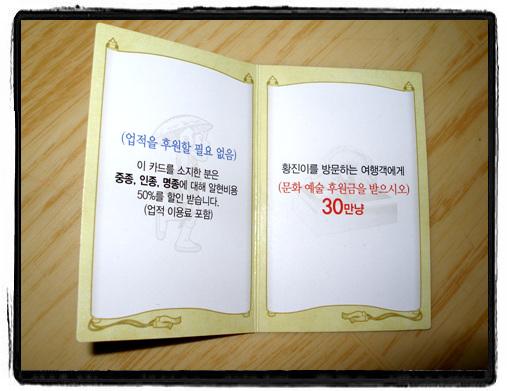 (업적을 후원할 필요 없음)
이 카드를 소지한 분은
중종, 인종, 명종에 대해 알현비용
50%를 할인 받습니다.
(업적 이용료 포함)
황진이를 방문하는 여행객에게
(문화 예술 후원금을 받으시오)
30만냥